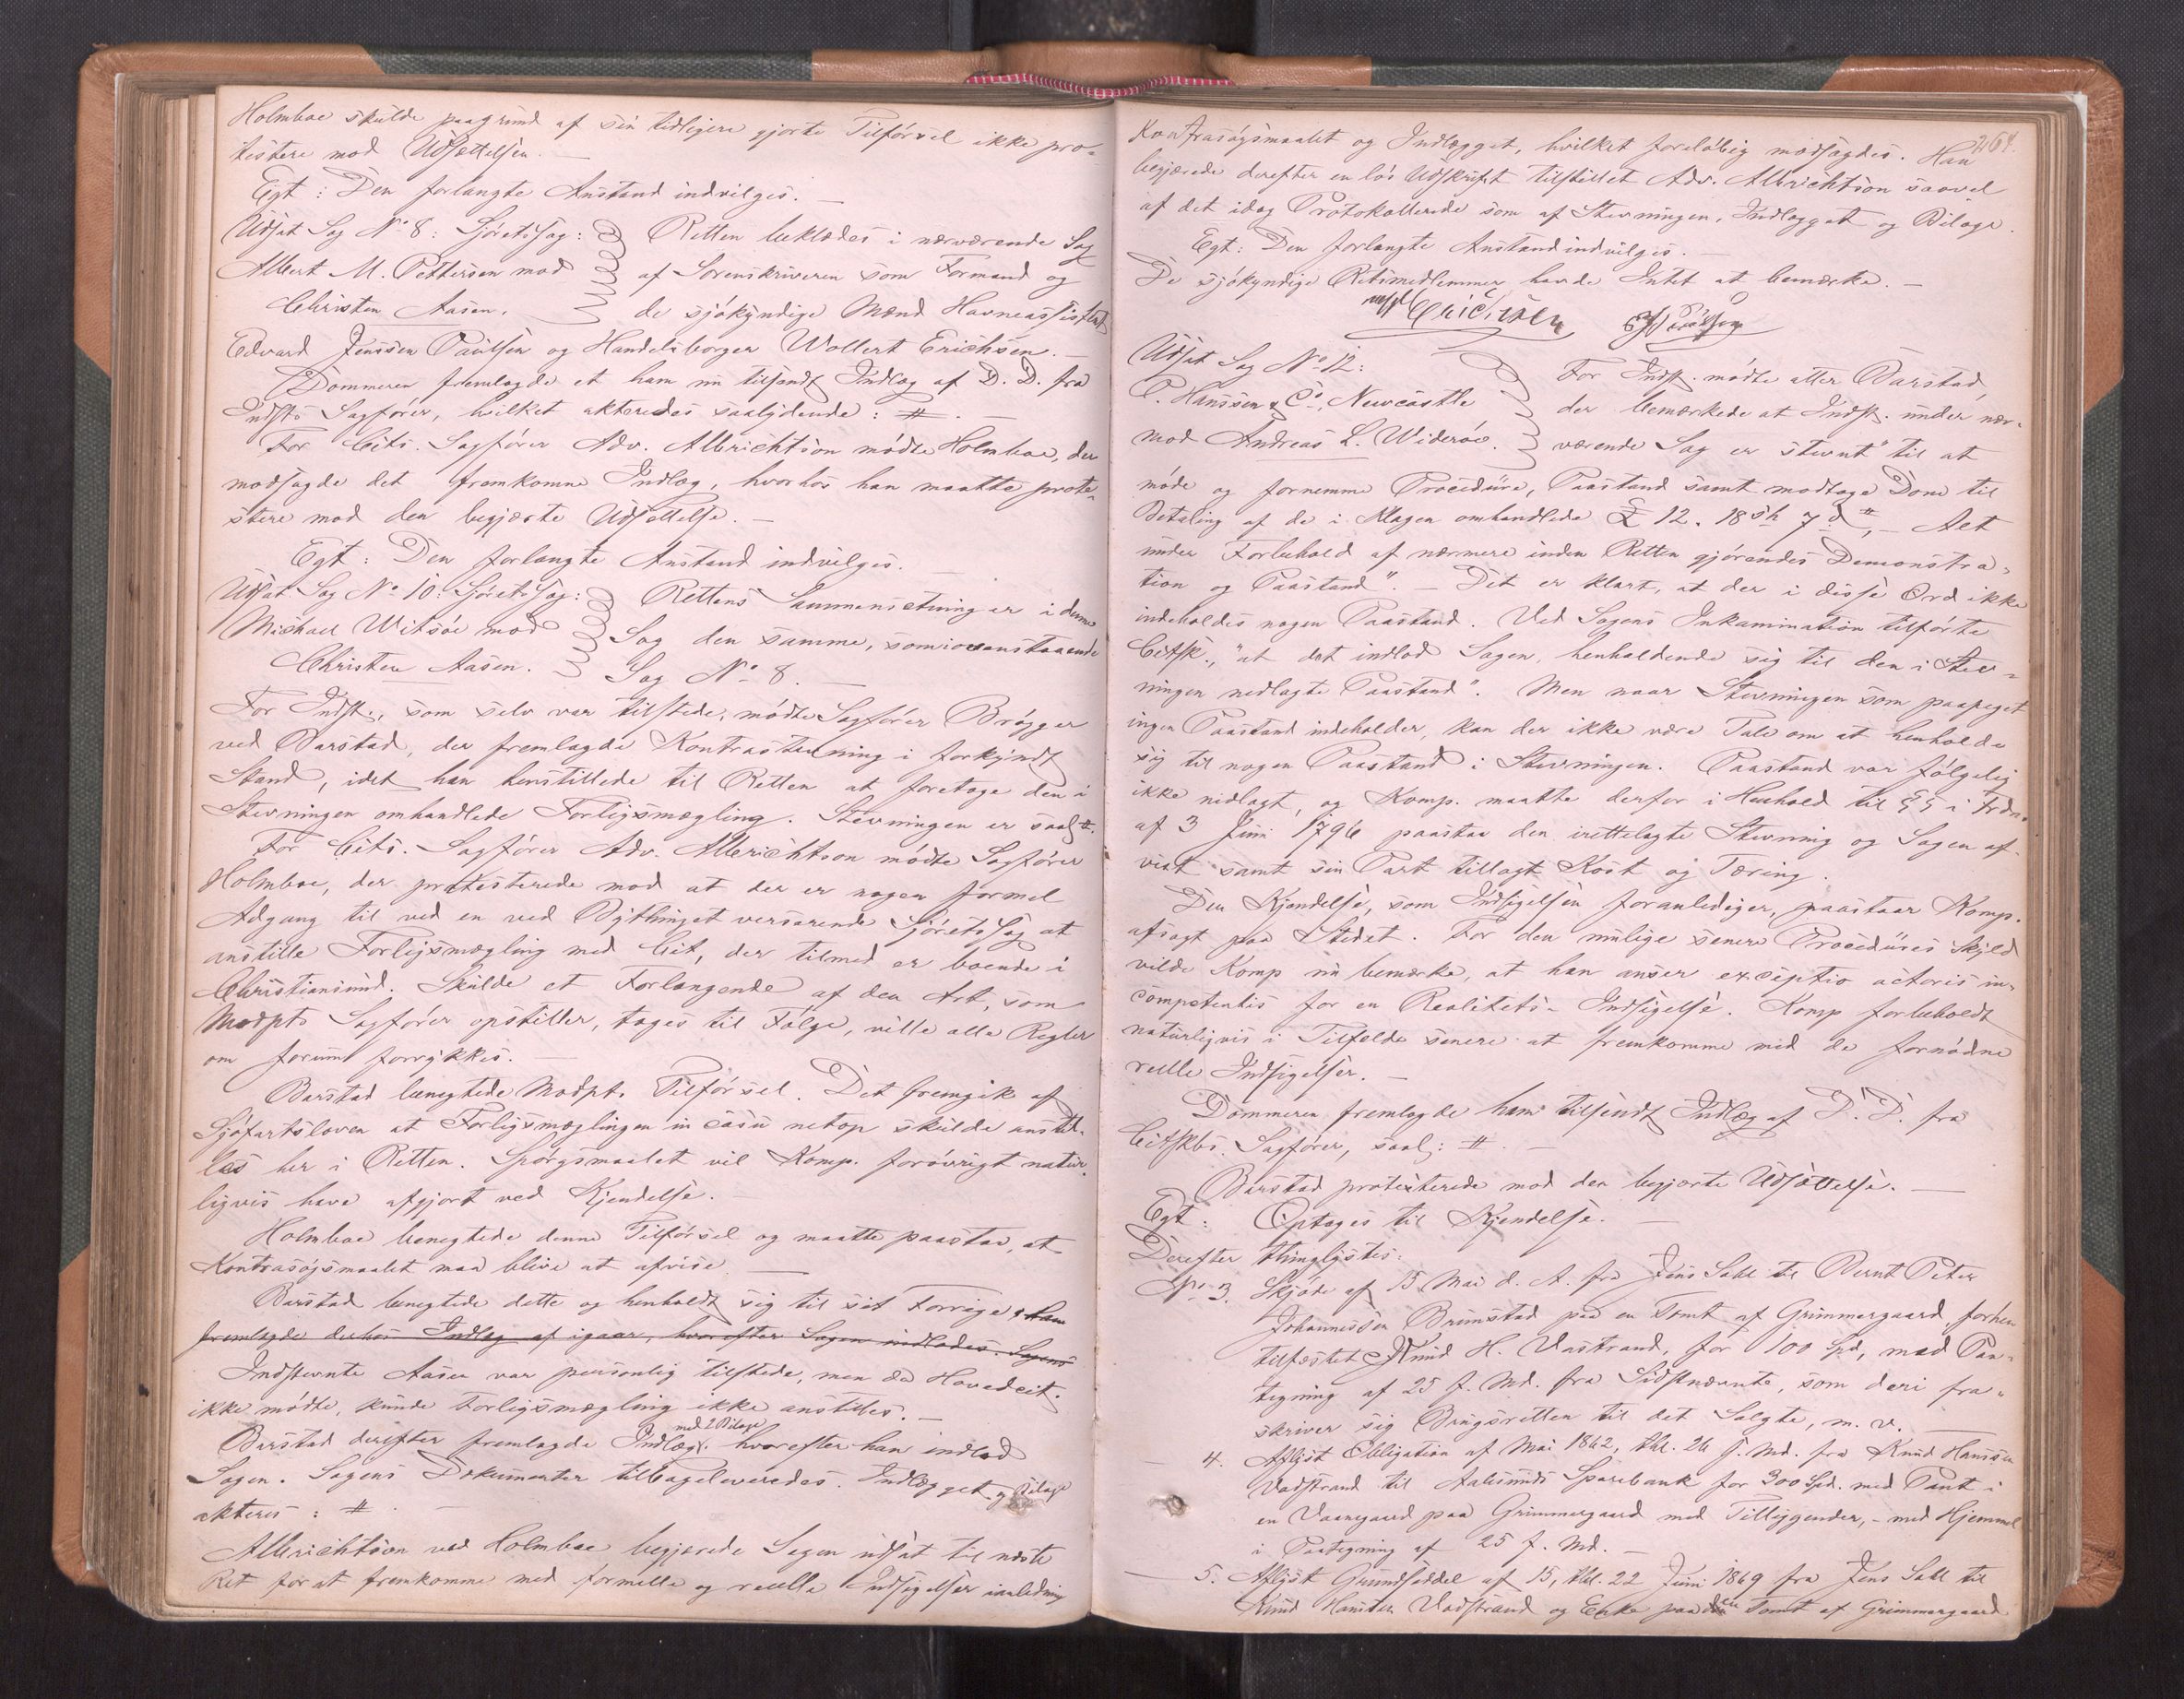 Holmboe skulde paagrund af sin tidligere gjorte Tilførsel ikke pro-
testere mod Udsættelsen. —
Egt: Den forlangte Anstand indvilges. —
Udsat Sag No 8: Sjøretssag:
Albert M. Pettersen mod
Christen Aasen.
Retten beklædes i nærværende Sag
af Sorenskriveren som Formand og
de sjøkyndige Mænd Havneassistent
Edvard Jenssen Paulsen og Handelsborger Wollert Erichsen. —
Dommeren fremlagde et ham nu tilsendt Indlæg af D. D. fra
Indsts Sagfører, hvilket akteredes saalydende: #. —
For Cits. Sagfører Adv. Albrichtson mødte Holmboe, der
modsagde det fremkomne Indlæg, hvorhos han maatte prote-
stere mod den begjærte Udsættelse. —
Egt: Den forlangte Anstand indvilges. —
Udsat Sag No 10: Sjøretssag:
Michael Witsøe mod
Christen Aasen.
Rettens Sammensætning er i denne
Sag den samme, som i ovenstaaende
Sag No 8. —
For Indst., som selv var tilstede, mødte Sagfører Brøgger
ved Barstad, der fremlagde Kontrastevning i forkyndt
Stand, idet han henstillede til Retten at foretage den i
Stevningen omhandlede Forligsmægling. Stevningen er saal #.
For Cits. Sagfører Adv. Albrichtson mødte Sagfører
Holmboe, der protesterede mod at der er nogen formel
Adgang til ved en ved Bythinget verserende Sjøretssag at
anstille Forligsmægling med Cit, der tilmed er boende i
Christiansund. Skulde et Forlangende af den Art, som
Modpts Sagfører opstiller, tages til Følge, ville alle Regler
om forum forrykkes. —
Barstad benegtede Modpts Tilførsel. Det fremgik af
Sjøfartsloven at Forligsmæglingen in casu netop skulde anstil-
les her i Retten. Spørgsmaalet vil Komp. forøvrigt natur-
ligvis have afgjort ved Kjendelse.
Holmboe benegtede denne Tilførsel og maatte paastaa, at
Kontrasøgsmaalet maa blive at afvise. —
Barstad benegtede dette og henholdt sig til sit Forrige & han
fremlagde derhos Indlæg af igaar, hvorefter Sagen indlodes. Sagens
Indstevnte Aasen var personlig tilstede, men da Hovedcit.
ikke mødte, kunde Forligsmægling ikke anstilles. —
Barstad derefter fremlagde Indlæg med 2 Bilage, hvorefter han indlod
Sagen. Sagens Dokumenter tilbageleveredes. Indlægget og Bilage
akteres: #. —
Albrichtson ved Holmboe begjærede Sagen udsat til næste
Ret for at fremkomme med formelle og reelle Indsigelser i anledning
264.
Kontrasøgsmaalet og Indlægget, hvilket foreløbig modsagdes. Han
begjærede derefter en løs Udskrift tilstillet Adv. Albrichtson saavel
af det idag Protokollerede som af Stevningen, Indlægget og Bilage.
Egt: Den forlangte Anstand indvilges. —
De sjøkyndige Retsmedlemmer havde Intet at bemærke. —
Erichsen Paulsen
Udsat Sag No 12:
P. Hanssen & Co, Newcastle
mod Andreas L. Widerøe.
For Indst. mødte atter Barstad,
der bemærkede at Indst. under nær-
værende Sag er stevnt "til at
møde og fornemme Procedure, Paastand samt modtage Dom til
Betaling af de i Klagen omhandlede £ 12. 18 sh 7 d", — Alt
under Forbehold af nærmere inden Retten gjørendes Demonstra-
tion og Paastand". — Det er klart, at der i disse Ord ikke
indeholdes nogen Paastand. Ved Sagens Inkamination tilførte
Citsk., "at det indlod Sagen, henholdende sig til den i Stev-
ningen nedlagte Paastand". Men naar Stevningen som paapeget
ingen Paastand indeholder, kan der ikke være Tale om at henholde
sig til nogen Paastand i Stevningen. Paastand var følgelig
ikke nidlagt, og Komp. maatte derfor i Henhold til § 5 i Frdn.
af 3 Juni 1796 paastaa den irettelagte Stevning og Sagen af-
vist samt sin Part tillagt Kost og Tæring.
Den Kjendelse, som Indsigelsen foranlediger, paastaar Komp.
afsagt paa Stedet. For den mulige senere Procedures Skyld
vilde Komp nu bemærke, at han anser exceptio actoris in-
competentis for en Realitets-Indsigelse. Komp forbeholdt
naturligvis i Tilfelde senere at fremkomme med de fornødne
reelle Indsigelser. —
Dommeren fremlagde ham tilsendt Indlæg af D. D. fra
Citskbs. Sagfører, saal: #. —
Barstad protesterede mod den begjærte Udsættelse. —
Egt: Optages til Kjendelse. —
Derefter thinglystes:
No 3. Skjøde af 15 Mai d. A. fra Jens Sall til Bernt Peter
Johannessen Brunstad paa en Tomt af Grimmergaard forhen
tilfæstet Knud H. Vadstrand, for 100 Spd, med Paa-
tegning af 25 f. Md. fra Sidstnævnte, som deri fra-
skriver sig Brugsretten til det Solgte, m. v. —
4. Aflyst Obligation af Mai 1862, thl. 26 f. Md. fra Knud Hanssen
Vadstrand til Aalesunds Sparebank for 300 Spd. med Pant i
en Vaanegaard paa Grimmergaard med Tilliggender, — med Hjemmel
i Paategning af 25 f. Md. —
5. Aflyst Grundseddel af 15, thl. 22 Juni 1869 fra Jens Sall til
Knud Hansten Vadstrand og Enke paa en Tomt af Grimmergaard